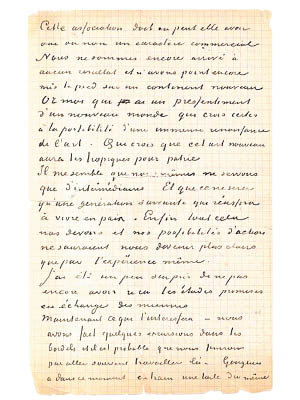 Cette association doit ou peut elle avoir
oui ou non un caractère commercial
Nous ne sommes encore arrivé à
aucun resultat et n'avons point encore
mis le pied sur un continent nouveau
Or moi qui ai un presentiment
d'un nouveau monde qui crois certes
à la possibilité d'une immense renaissance
de l'art. Qui crois que cet art nouveau
aura les tropiques pour patrie
Il me semble que nous mêmes ne servons
que d'intermédiaires Et que ce ne sera
qu'une génération suivante qui réussira
à vivre en paix. Enfin tout cela
nos devoirs et nos possibilités d'action
ne sauraient nous devenir plus clairs
que par l'expérience même.
J'ai été un peu surpris de ne pas
encore avoir reçu les études promises
en échange des miennes
Maintenant ce qui t'interessera - nous
avons fait quelques excursions dans les
bordels et il est probable que nous finirons
par aller souvent travailler là. Gauguin
a dans ce moment en train une toile du même